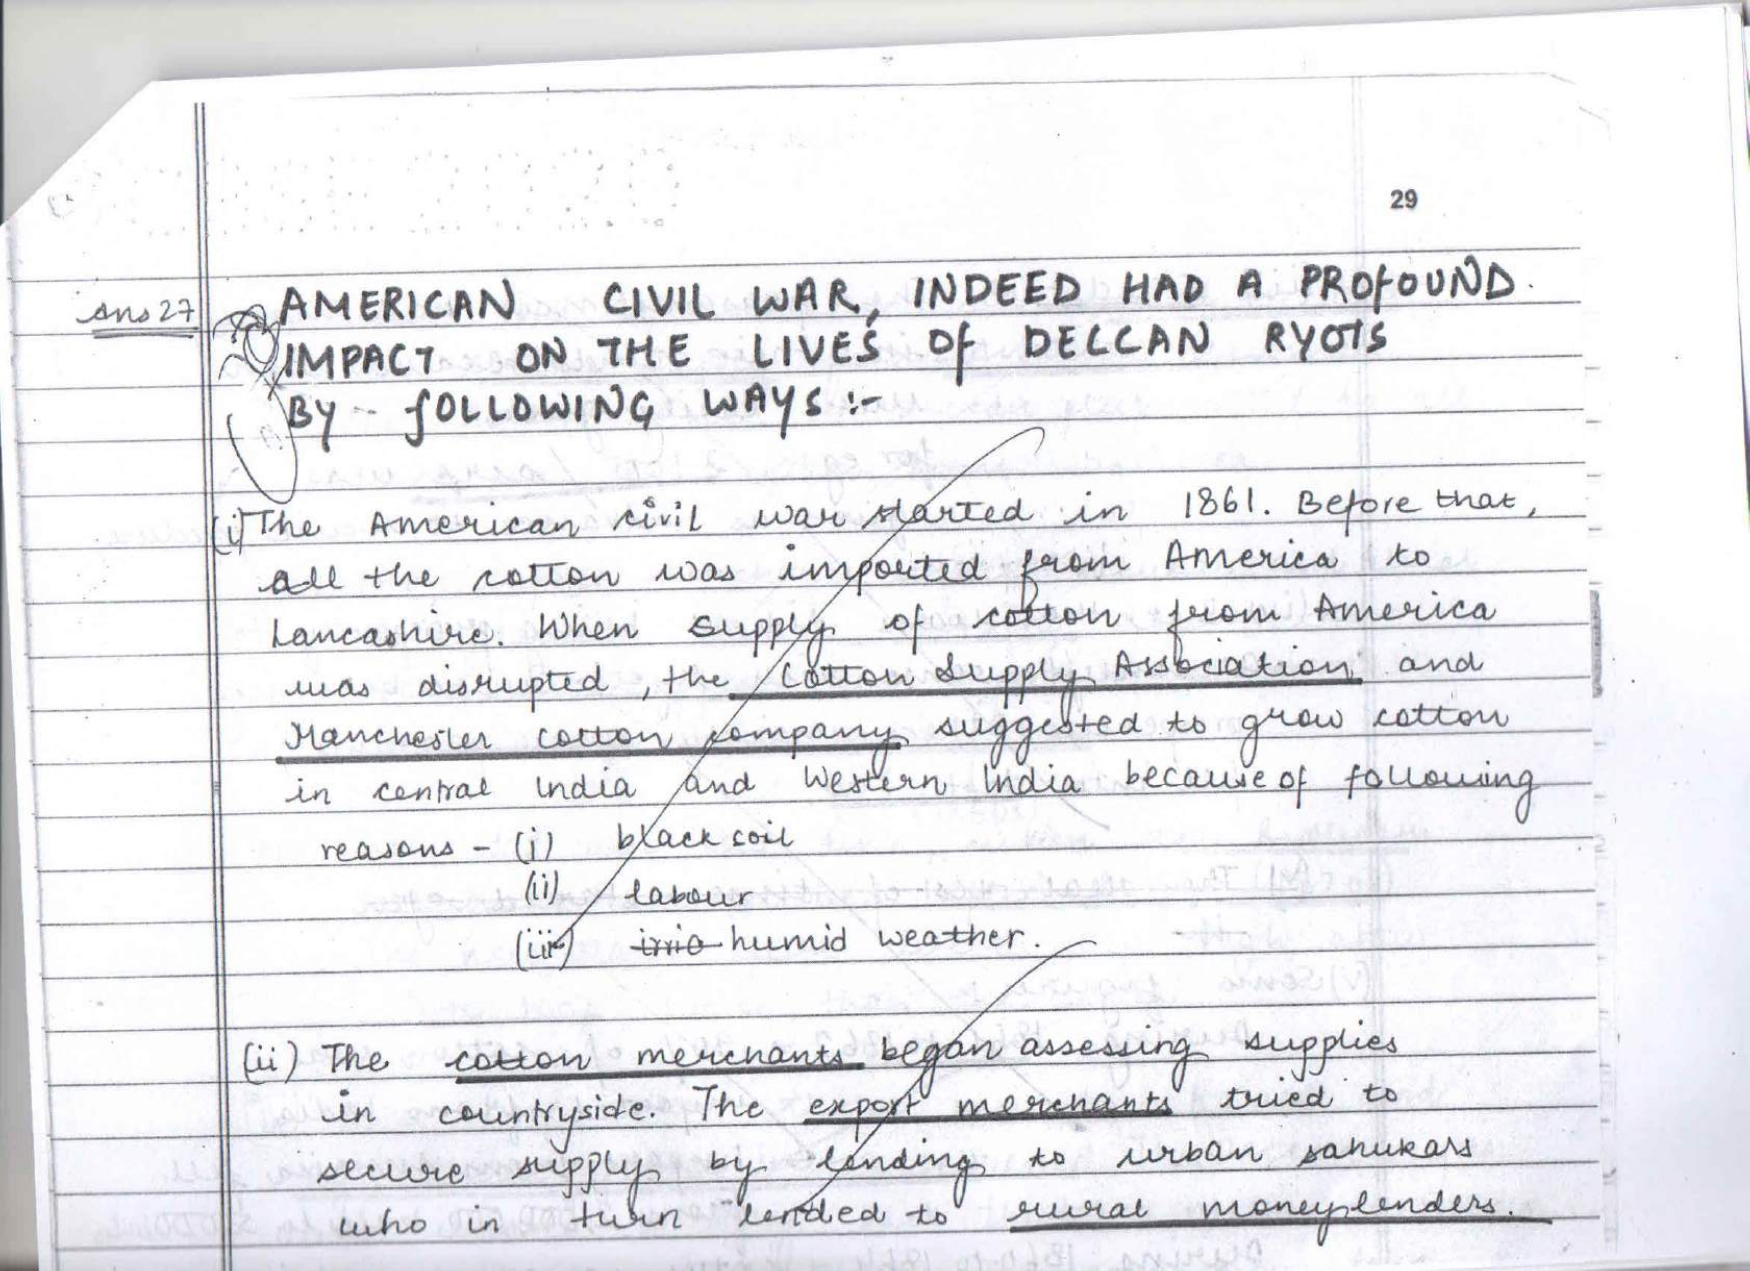 29
Ans 27
AMERICAN CIVIL WAR, INDEED HAD A PROFOUND
IMPACT ON THE LIVES OF DECCAN RYOTS
BY - FOLLOWING WAYS :-
(i) The American civil war started in 1861. Before that,
all the cotton was imported from America to
Lancashire. When supply of cotton from America
was disrupted, the Cotton Supply Association and
Manchester cotton company suggested to grow cotton
in central India and Western India because of following
reasons - (i) black soil
(ii) labour
(iii) humid weather.
(ii) The cotton merchants began assessing supplies
in countryside. The export merchants tried to
secure supply by lending to urban sahukars
who in turn lended to rural moneylenders.